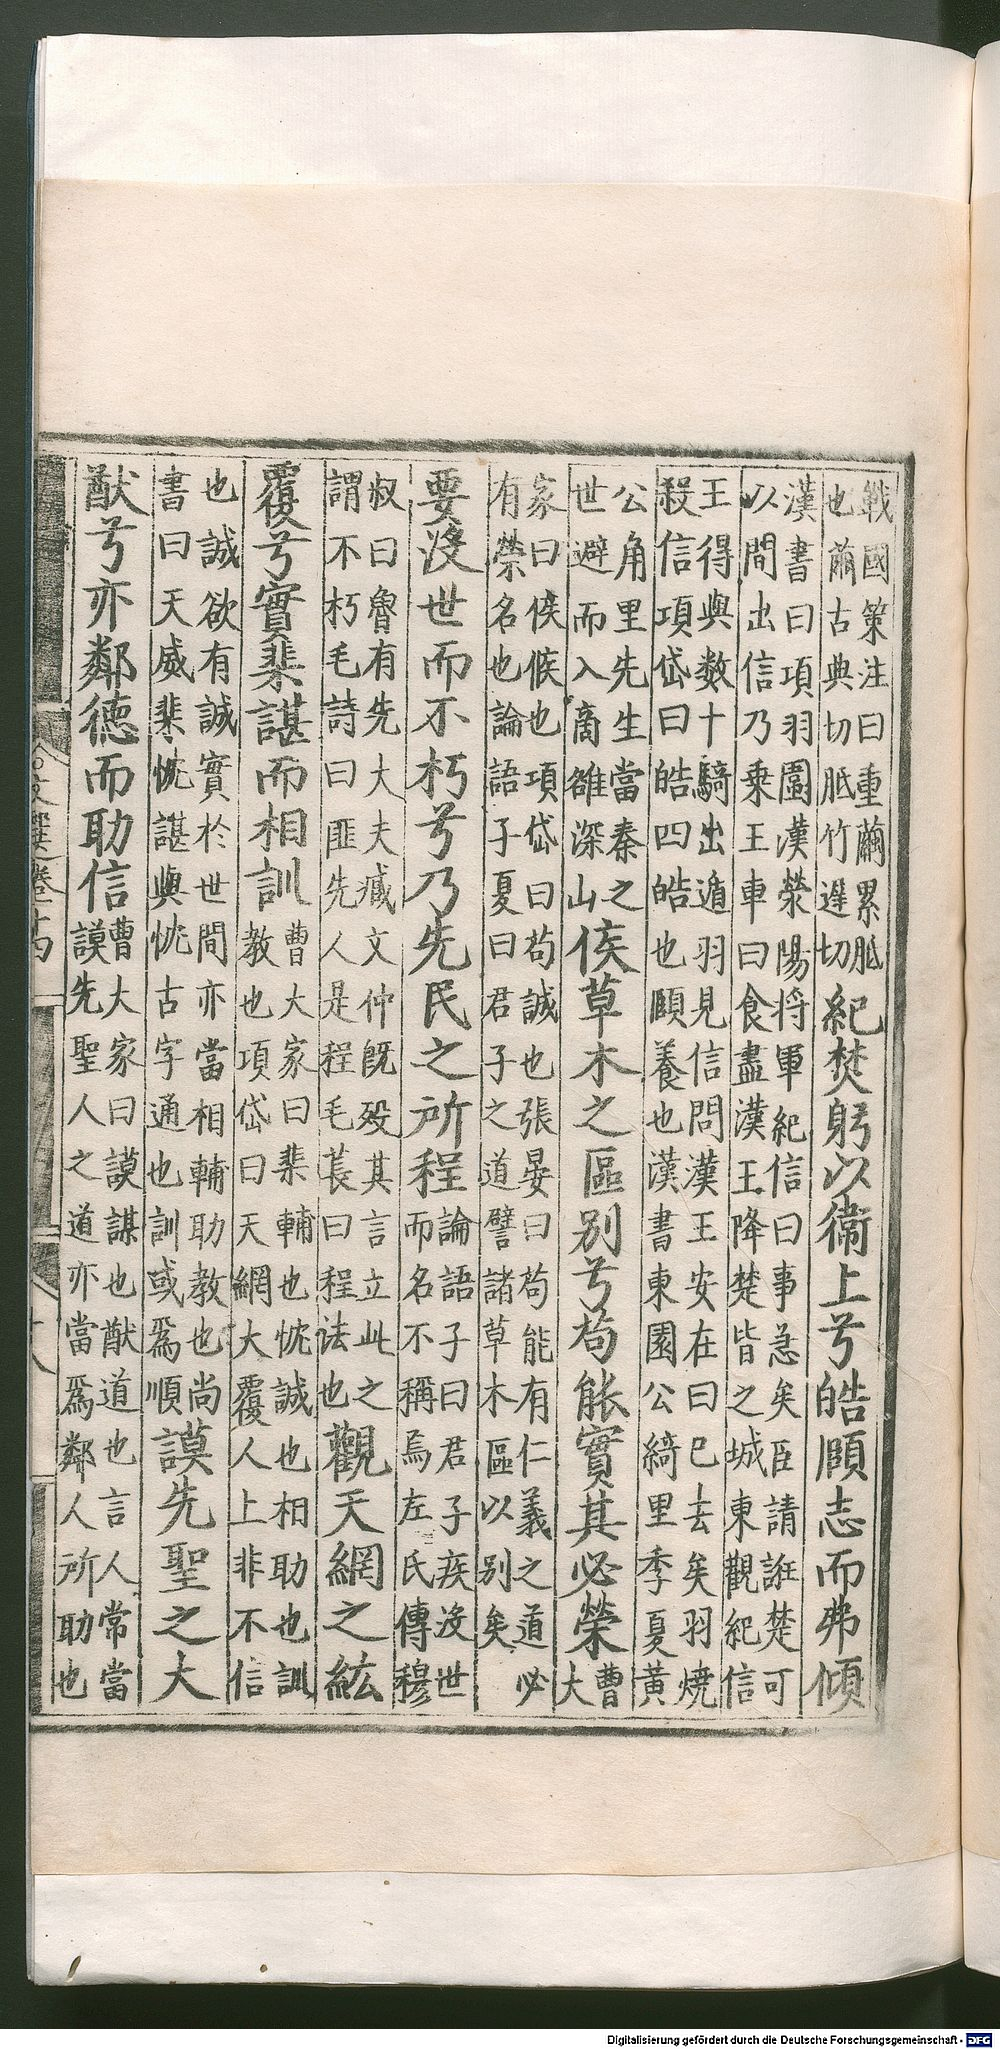 戰國策注曰重繭累胝
也繭古典切胝竹遲切
紀焚躬以衛上兮皓頤志而弗傾
漢書曰項羽圍漢滎陽将軍紀信曰事急矣臣請誑楚可
以間出信乃乗王車曰食盡漢王降楚皆之城東觀紀信
王得與数十騎出遁羽見信問漢王安在曰已去矣羽燒
殺信項岱曰皓四皓也頤養也漢書東園公綺里季夏黃
公角里先生當秦之
世避而入商雒深山
侯草木之區别兮苟能實其必榮
曹
大
家曰侯候也項岱曰苟誠也張晏曰苟能有仁義之道必
有榮名也論語子夏曰君子之道譬諸草木區以别矣
要没世而不朽兮乃先民之所程
論語子曰君子疾没世
而名不稱焉左氏傳穆
叔曰魯有先大夫臧文仲旣殁其言立此之
謂不朽毛詩曰匪先人是程毛萇曰程法也
觀天網之紘
覆兮實棐諶而相訓
曹大家曰棐輔也忱誠也相助也訓
教也項岱曰天網大覆人上非不信
也誠欲有誠實於世間亦當相輔助教也尚
書曰天威棐忱諶與忱古字通也訓或爲順
謨先聖之大
猷兮亦鄰德而助信
曹大家曰謨謀也猷道也言人常當
謨先聖人之道亦當爲鄰人所助也
文選卷十四
十八
Digitalisierung gefördert durch die Deutsche Forschungsgemeinschaft - DFG